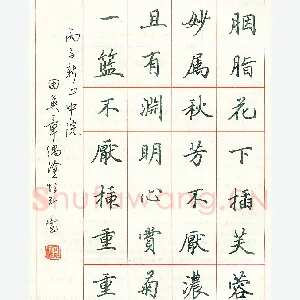 胭脂花下插芙蓉
妙属秋芳不厭濃
且有淵明心賞菊
一籃不厭插重重
丙子新正中浣
田英章
Shufawang.CN